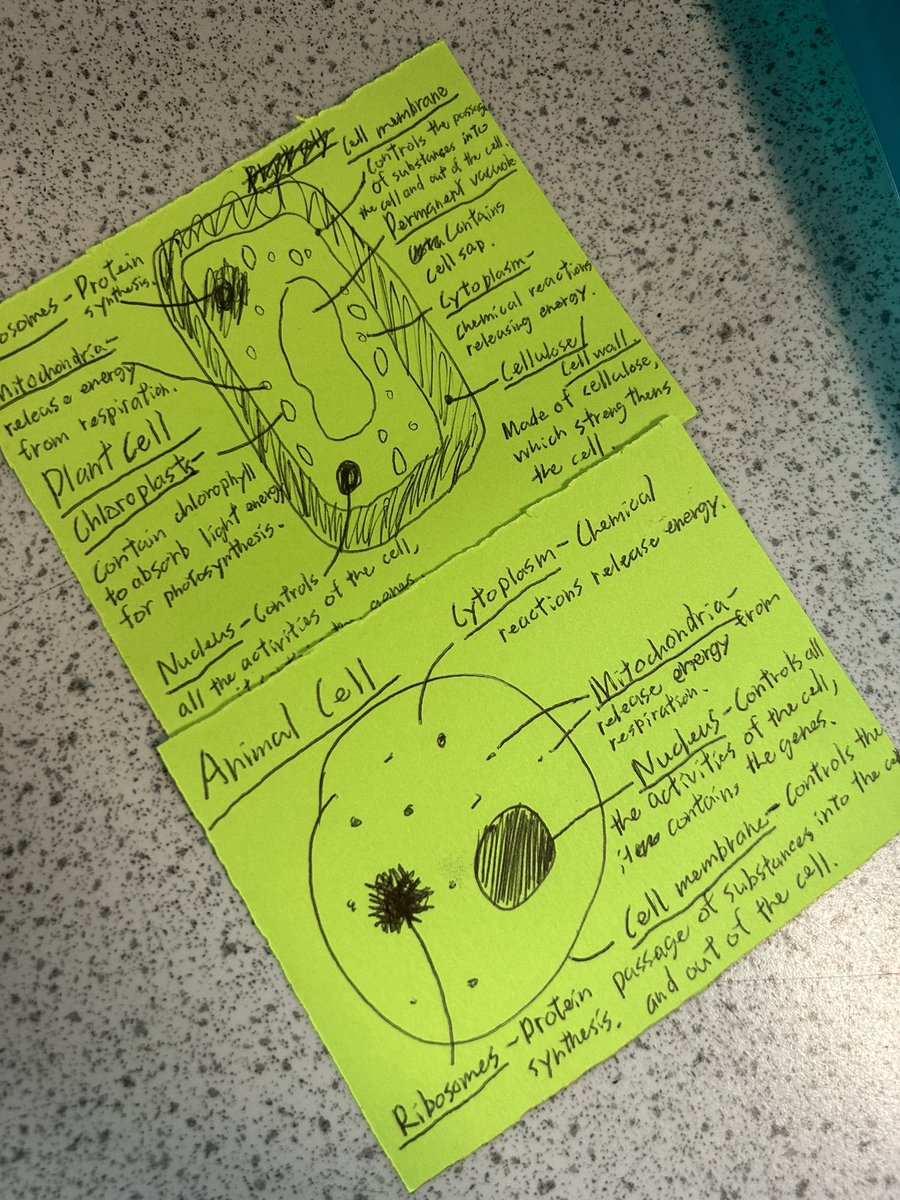 Cell membrane
Controls the passag
of substances into
the cell and out of the cell.
Permanent vacuole
Contains
cell sap.
Cytoplasm-
Chemical reactions
releasing energy.
Cellulose/
Cell wall
Made of cellulose,
which strengthens
the cell.
osomes - Protein
synthesis.
Mitochondria-
release energy
from respiration.
Plant Cell
Chloroplasts-
contain chlorophyll
to absorb light energy
for photosynthesis.
Nucleus - Controls
all the activities of the cell,
genes.
Animal Cell
Cytoplasm - Chemical
reactions release energy.
Mitochondria-
release energy from
respiration.
Nucleus - Controls all
the activities of the cell,
it contains the genes.
Cell membrane - Controls the
passage of substances into the ce
and out of the cell.
Ribosomes - Protein
synthesis.